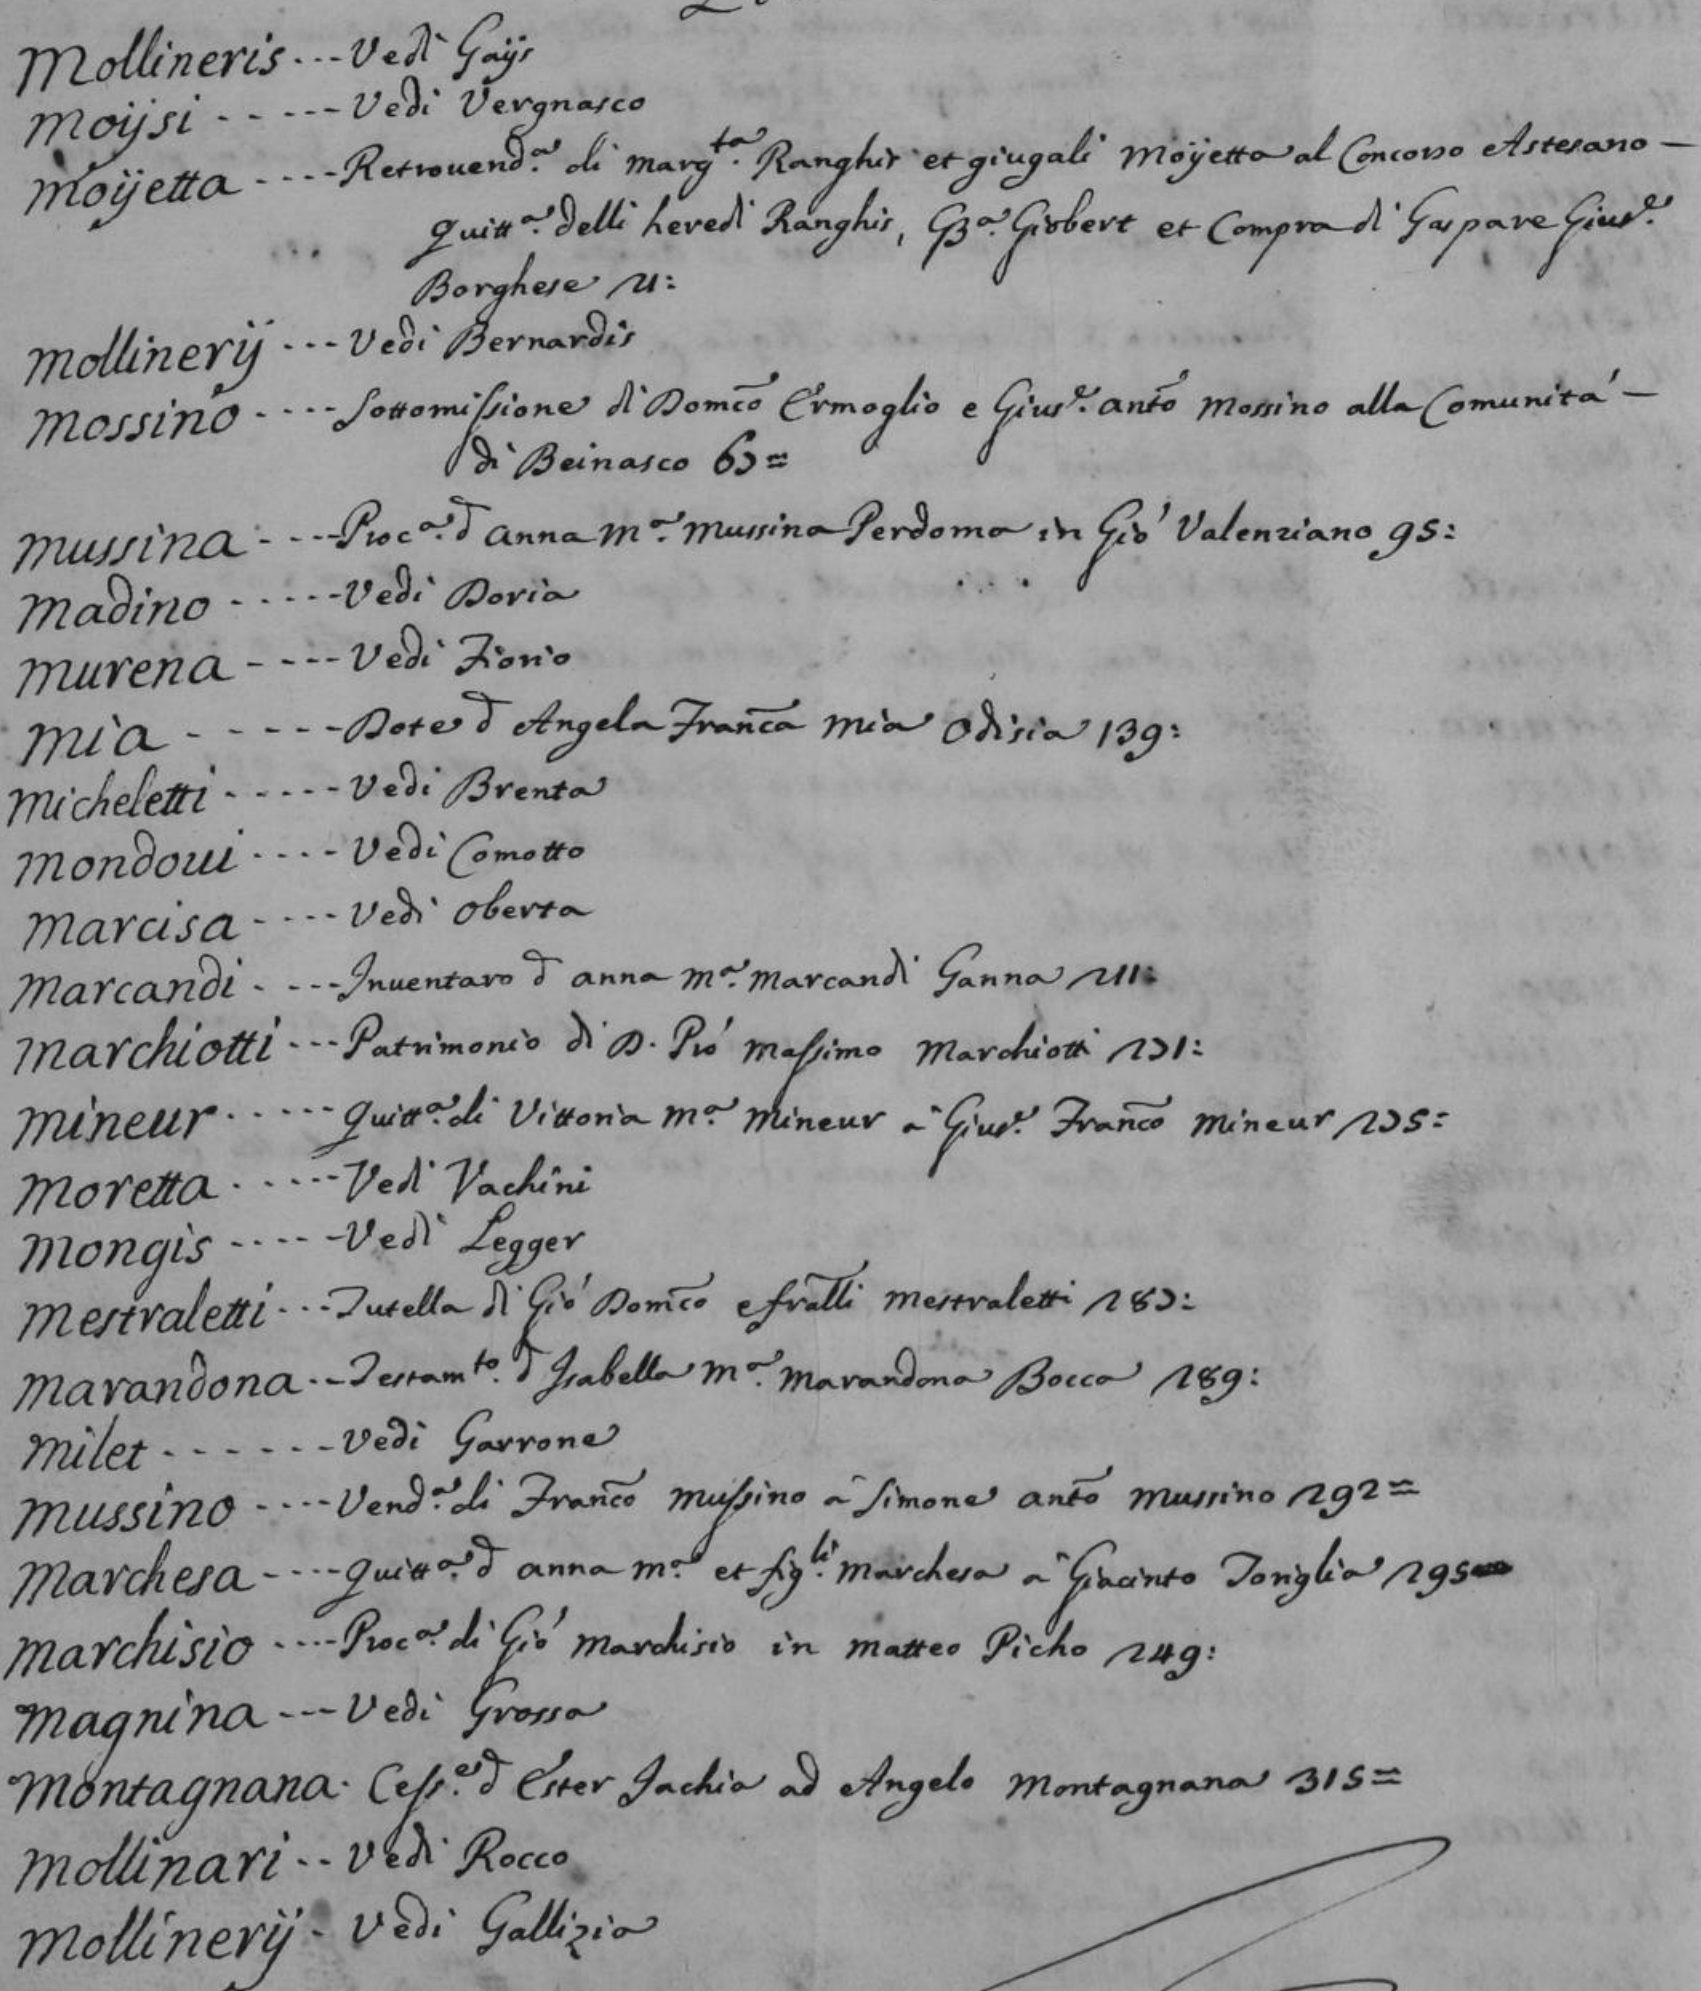 Mollineris --- Vedi Gaijs
Moijsi ----- Vedi Vergnasco
Moijetta ---- Retrouend.ª di Marg.ta Ranghis et giugali Moijetta al Concorso Astesano —
Quitt.ª delli heredi Ranghis, GBª. Gisbert et Compra di Gaspare Gius.e
Borghese 21:
Mollinerij --- Vedi Bernardis
Mossino ---- Sottomissione di Domco Ermoglio e Gius.e Anto Mossino alla Comunità —
di Beinasco 63=
Mussina ---- Proc.ª d Anna M.ª Mussina Perdoma in Gio' Valenziano 95:
Madino ----- Vedi Doria
Murena ---- Vedi Fiorio
Mia ------ Dote d Angela Franca Mia Odisia 139:
Micheletti ----- Vedi Brenta
Mondoui ---- Vedi Comotto
Marcisa ---- Vedi Oberta
Marcandi ---- Inuentaro d Anna M.ª Marcandi Ganna 211:
Marchiotti --- Patrimonio di D. Pio' Massimo Marchiotti 131:
Mineur ----- Quitt.ª di Vittoria M.ª Mineur â Gius.e Franco Mineur 135=
Moretta ----- Vedi Vachini
Mongis ----- Vedi Legger
Mestraletti --- Tutella di Gio' Domco e fralli Mestraletti 183:
Marandona -- Testam.to d Isabella M.ª Marandona Bocca 189:
Milet ------- Vedi Garrone
Mussino ---- Vend.ª di Franco Mussino â Simone Anto Mussino 292=
Marchesa ---- Quitt.ª d Anna M.ª et fig.li Marchesa â Giacinto Toniglia 295
Marchisio ---- Proc.ª di Gio' Marchisio in Matteo Picho 249:
Magnina --- Vedi Grossa
Montagnana - Cess.e d Ester Jachia ad Angelo Montagnana 315=
Mollinari -- Vedi Rocco
Mollinerij - Vedi Gallizia